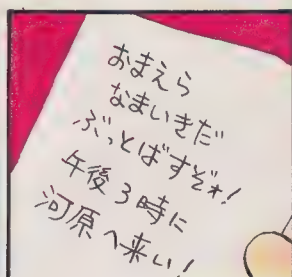 おまえら
なまいきだ
ぶっとばすぞォ!
午後3時に
河原へ来い!